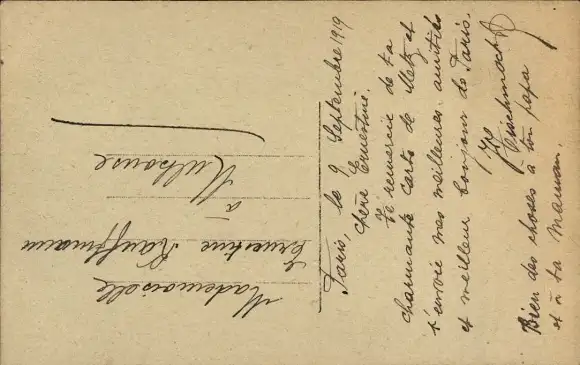 Paris, le 9 Septembre 1919
Chère Ernestine.
Je remercie de ta
charmante carte de Metz et
t'envoie mes meilleures amitiés
et meilleur bonjour de Paris.
Bien des choses à ton papa
et à ta maman.
Mademoiselle
Ernestine Kauffmann
à
Mulhouse